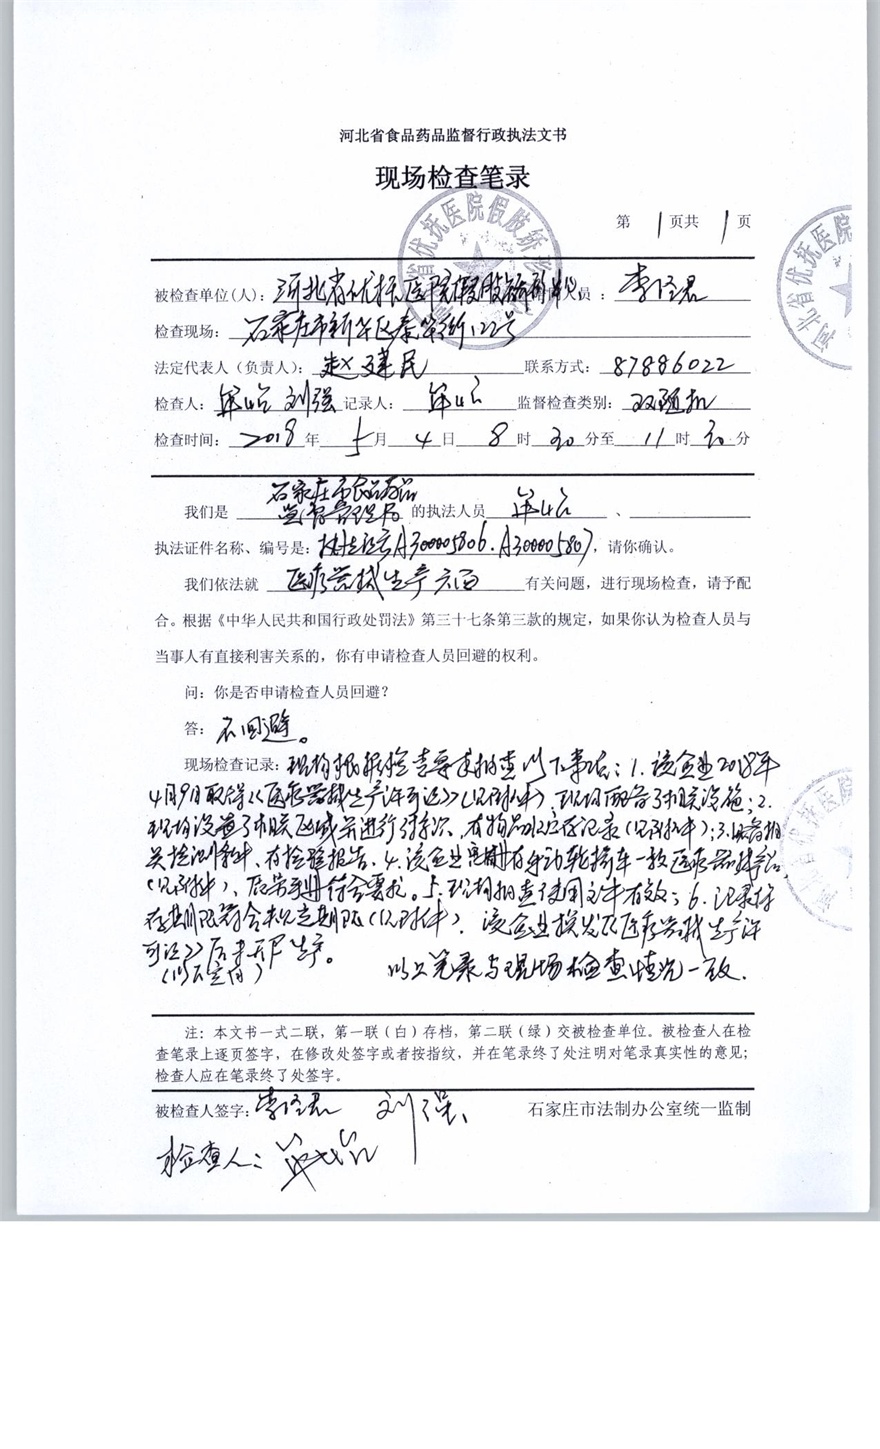 河北省食品药品监督行政执法文书
现场检查笔录
第 1 页共 1 页
被检查单位(人)：河北省优抚医院假肢矫形 人员：
检查现场：石家庄市新华区泰华街122号
法定代表人（负责人）：赵建民 联系方式：87886022
检查人： 刘强 记录人： 监督检查类别：双随机
检查时间：2018 年 5 月 4 日 8 时 30 分至 11 时 30 分
我们是 石家庄市食品药品监督管理局 的执法人员 、
执法证件名称、编号是：执法证号A300005806.A300005807，请你确认。
我们依法就 医疗器械生产方面 有关问题，进行现场检查，请予配
合。根据《中华人民共和国行政处罚法》第三十七条第三款的规定，如果你认为检查人员与
当事人有直接利害关系的，你有申请检查人员回避的权利。
问：你是否申请检查人员回避？
答：不回避。
现场检查记录：现场根据检查要求抽查以下事项：1.该企业2018年
4月9日取得《医疗器械生产许可证》(见附件)，现场配备了相关设施；2.
现场设置了相关区域并进行了标识，有物品 存记录(见附件)；3.
关检测 ，有检验报告．4.该企业 有手动轮椅车一 医疗器械
(见附件)， 符合要求。5.现场抽查使用文件有效；6.记录保
存期限符合 规定期限(见附件)．该企业 医疗器械生产许
可证》后 生产。
(以下空白) 以上笔录与现场检查情况一致．
注：本文书一式二联，第一联（白）存档，第二联（绿）交被检查单位。被检查人在检
查笔录上逐页签字，在修改处签字或者按指纹，并在笔录终了处注明对笔录真实性的意见；
检查人应在笔录终了处签字。
被检查人签字： 刘强 石家庄市法制办公室统一监制
检查人：